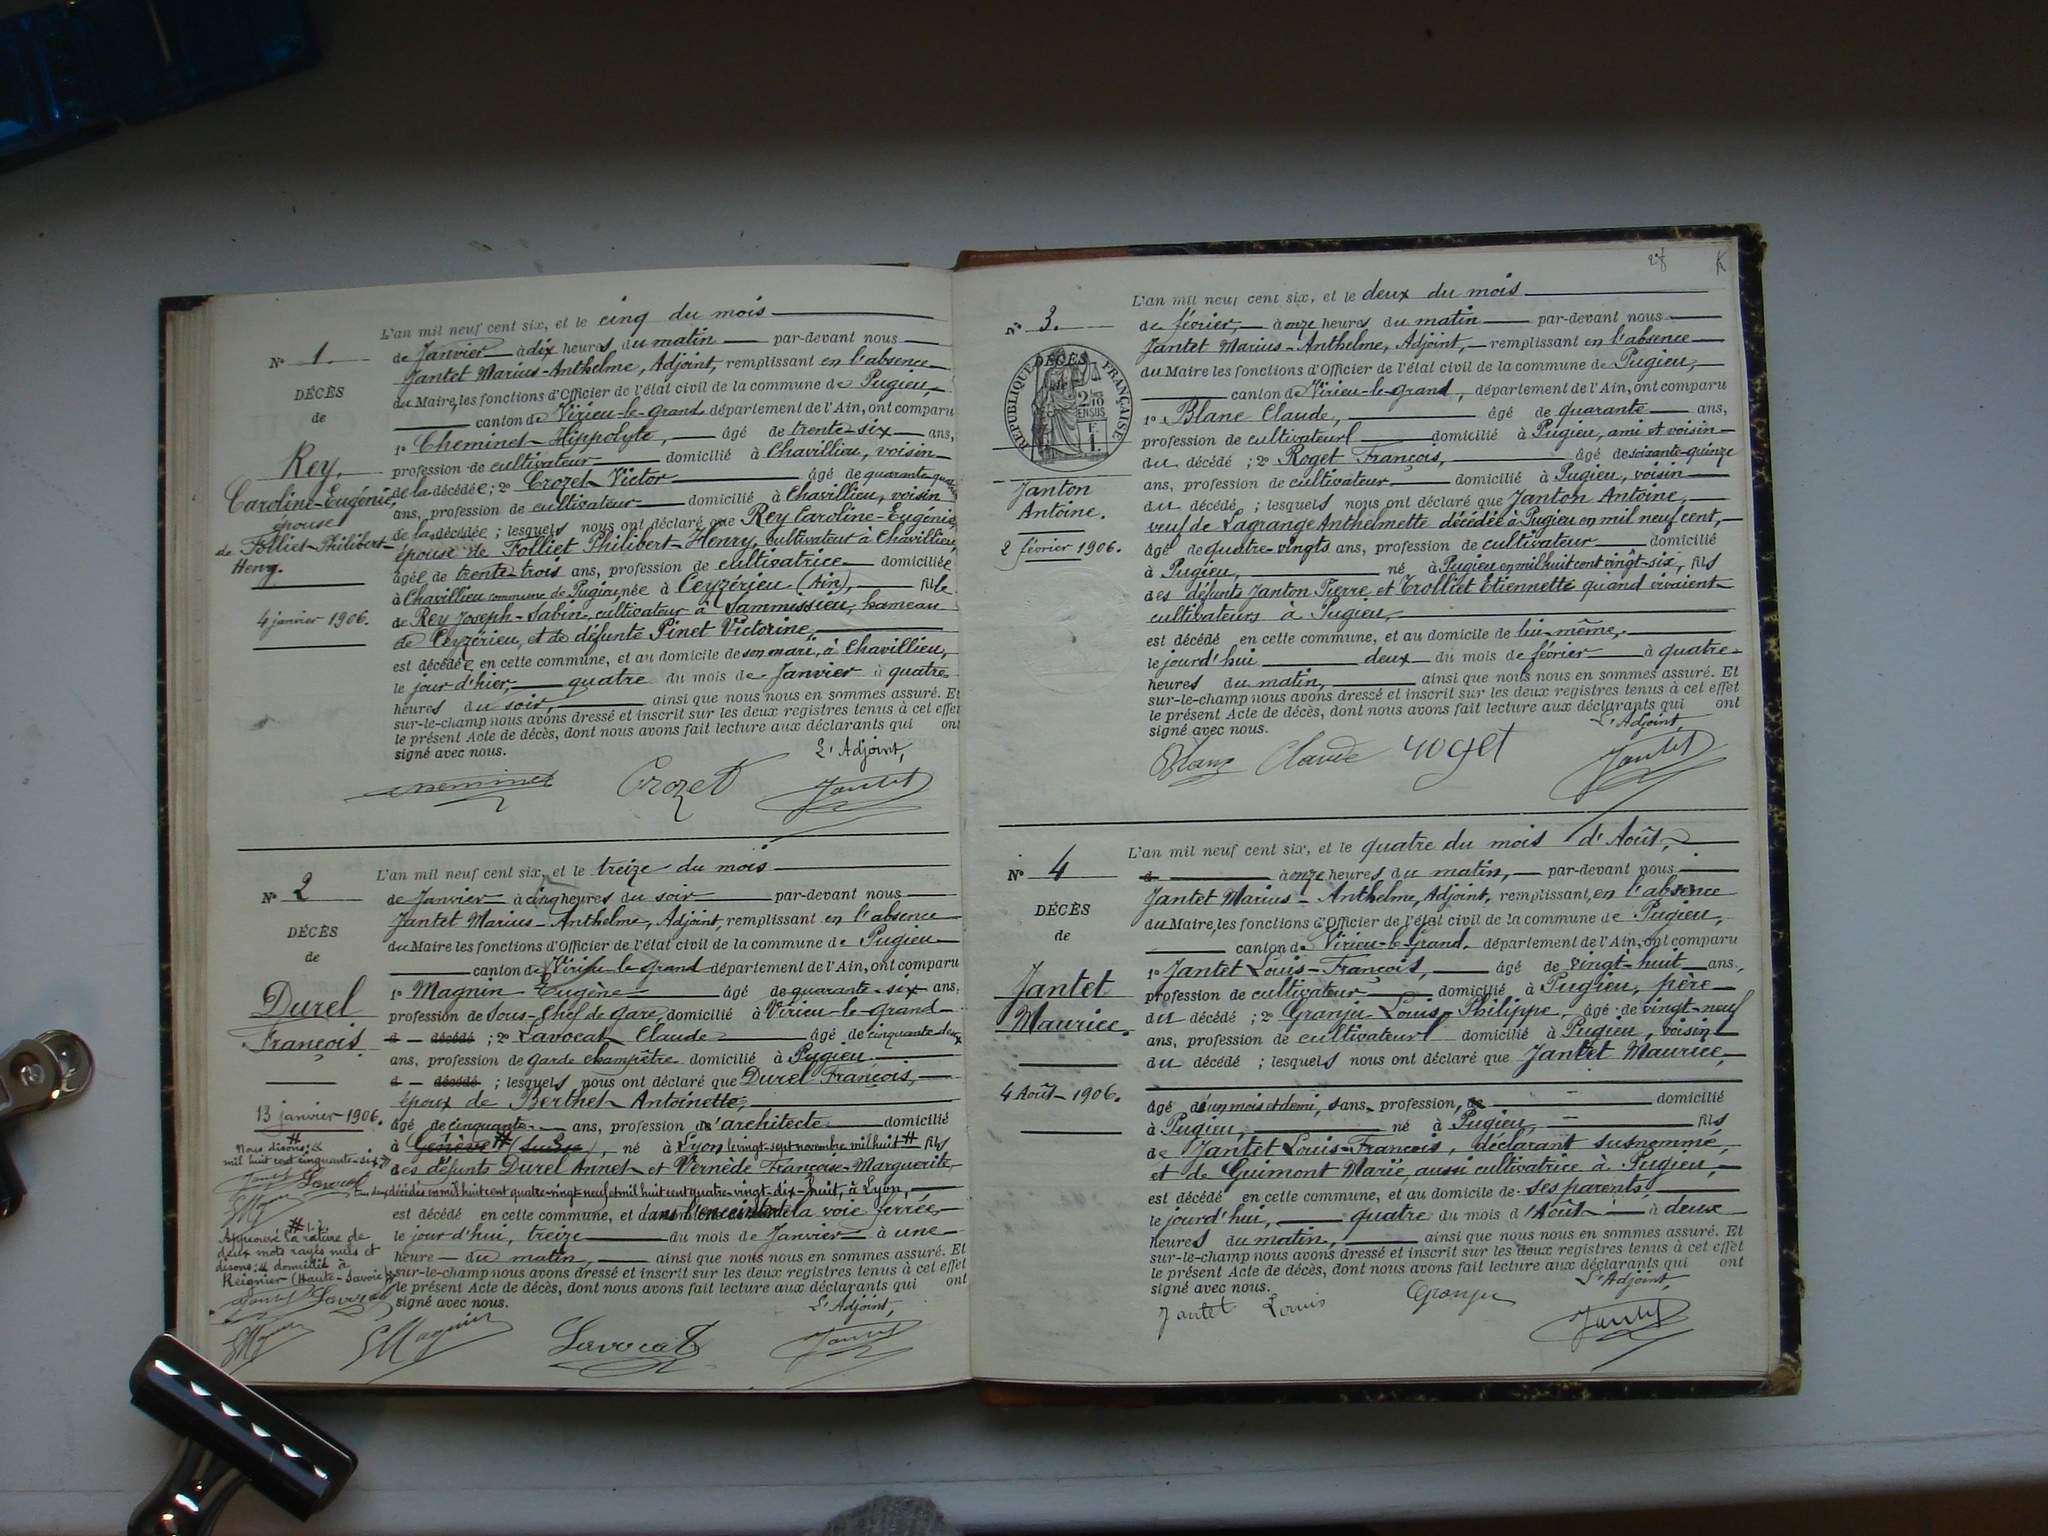 L'an mil neuf cent six, et le cinq du mois
N° 1.
de Janvier à dix heures du matin par-devant nous
Jantet Marius-Anthelme, Adjoint, remplissant en l'absence
DÉCÈS
du Maire, les fonctions d'Officier de l'état civil de la commune de Pugieu,
de
canton de Virieu-le-grand département de l'Ain, ont comparu
1° Cheminet Hippolyte, âgé de trente-six ans,
Rey,
profession de cultivateur domicilié à Chavillieu, voisin
Caroline-Eugénie,
de la décédée; 2° Crozet Victor âgé de quarante-quatre
épouse
ans, profession de cultivateur domicilié à Chavillieu, voisin
de Folliet-Philibert-
de la décédée; lesquels nous ont déclaré que Rey Caroline-Eugénie,
Henry.
épouse de Folliet Philibert-Henry, cultivateur à Chavillieu,
âgée de trente-trois ans, profession de cultivatrice domiciliée
à Chavillieu commune de Pugieu, née à Ceyzérieu (Ain), fille
4 janvier 1906.
de Rey Joseph-Sabin, cultivateur à Sammessieu, hameau
de Ceyzérieu, et de défunte Pinet Victorine,
est décédée en cette commune, et au domicile de son mari, à Chavillieu,
le jour d'hier, quatre du mois de Janvier à quatre
heures du soir, ainsi que nous nous en sommes assuré. Et
sur-le-champ nous avons dressé et inscrit sur les deux registres tenus à cet effet
le présent Acte de décès, dont nous avons fait lecture aux déclarants qui ont
signé avec nous.
L'Adjoint,
Cheminet Crozet Jantet
L'an mil neuf cent six, et le treize du mois
N° 2
de Janvier à cinq heures du soir par-devant nous
Jantet Marius-Anthelme, Adjoint, remplissant en l'absence
DÉCÈS
du Maire les fonctions d'Officier de l'état civil de la commune de Pugieu
de
canton de Virieu-le-grand département de l'Ain, ont comparu
Durel
1° Magnin Eugène âgé de quarante-six ans,
profession de Sous-Chef de gare, domicilié à Virieu-le-Grand
François.
d décédé; 2° Lavocat Claude âgé de cinquante-deux
ans, profession de garde champêtre domicilié à Pugieu
d décédé; lesquels nous ont déclaré que Durel François,
époux de Berthet Antoinette,
13 janvier 1906.
âgé de cinquante ans, profession d'architecte domicilié
à Genève # (suisse), né à Lyon le vingt-sept novembre mil huit # fils
# Nous disons: «
mil huit cent cinquante-six »
des défunts Durel Annet et Vernède Françoise-Marguerite,
Jantet Lavocat
tous deux décédés en mil huit cent quatre-vingt-neuf et mil huit cent quatre-vingt-dix-huit, à Lyon,
EMagnin
est décédé en cette commune, et dans l'enceinte de la voie ferrée
le jour d'hui, treize du mois de Janvier à une
Approuvé la rature de
deux mots rayés nuls et
disons: « domicilié à
Reignier (Haute-Savoie) »
heure du matin, ainsi que nous nous en sommes assuré. Et
sur-le-champ nous avons dressé et inscrit sur les deux registres tenus à cet effet
le présent Acte de décès, dont nous avons fait lecture aux déclarants qui ont
Jantet Lavocat
signé avec nous.
L'Adjoint,
EMagnin EMagnin Lavocat Jantet
L'an mil neuf cent six, et le deux du mois
N° 3.
de février, à onze heures du matin par-devant nous
Jantet Marius-Anthelme, Adjoint, remplissant en l'absence
DÉCÈS
RÉPUBLIQUE FRANÇAISE
2/10 EN SUS
F. 1.
du Maire les fonctions d'Officier de l'état civil de la commune de Pugieu,
canton de Virieu-le-grand, département de l'Ain, ont comparu
1° Blanc Claude, âgé de quarante ans,
profession de cultivateur domicilié à Pugieu, ami et voisin
du décédé; 2° Roget François, âgé de soixante-quinze
ans, profession de cultivateur domicilié à Pugieu, voisin
Janton
Antoine.
du décédé; lesquels nous ont déclaré que Janton Antoine,
veuf de Lagrange Anthelmette décédée à Pugieu en mil neuf cent,
2 février 1906.
âgé de quatre-vingts ans, profession de cultivateur domicilié
à Pugieu, né à Pugieu en mil huit cent vingt-six, fils
des défunts Janton Pierre et Trolliet Etiennette quand vivaient
cultivateurs à Pugieu,
est décédé en cette commune, et au domicile de lui-même,
le jourd'hui deux du mois de février à quatre
heures du matin, ainsi que nous nous en sommes assuré. Et
sur-le-champ nous avons dressé et inscrit sur les deux registres tenus à cet effet
le présent Acte de décès, dont nous avons fait lecture aux déclarants qui ont
signé avec nous.
L'Adjoint,
Blanc Claude roget Jantet
L'an mil neuf cent six, et le quatre du mois d'Août,
N° 4
d à onze heures du matin, par-devant nous
Jantet Marius-Anthelme, Adjoint, remplissant en l'absence
DÉCÈS
du Maire, les fonctions d'Officier de l'état civil de la commune de Pugieu,
de
canton de Virieu-le-Grand, département de l'Ain, ont comparu
Jantet
1° Jantet Louis-François, âgé de vingt-huit ans,
profession de cultivateur domicilié à Pugieu, père
Maurice.
du décédé; 2° Granju Louis-Philippe, âgé de vingt-neuf
ans, profession de cultivateur domicilié à Pugieu, voisin
du décédé; lesquels nous ont déclaré que Jantet Maurice,
4 Août 1906.
âgé d'un mois et demi, sans profession, de domicilié
à Pugieu, né à Pugieu, fils
de Jantet Louis-François, déclarant susnommé,
et de Guimont Marie, aussi cultivatrice à Pugieu,
est décédé en cette commune, et au domicile de ses parents,
le jourd'hui, quatre du mois d'Août à deux
heures du matin, ainsi que nous nous en sommes assuré. Et
sur-le-champ nous avons dressé et inscrit sur les deux registres tenus à cet effet
le présent Acte de décès, dont nous avons fait lecture aux déclarants qui ont
signé avec nous.
L'Adjoint,
Jantet Louis Granju Jantet